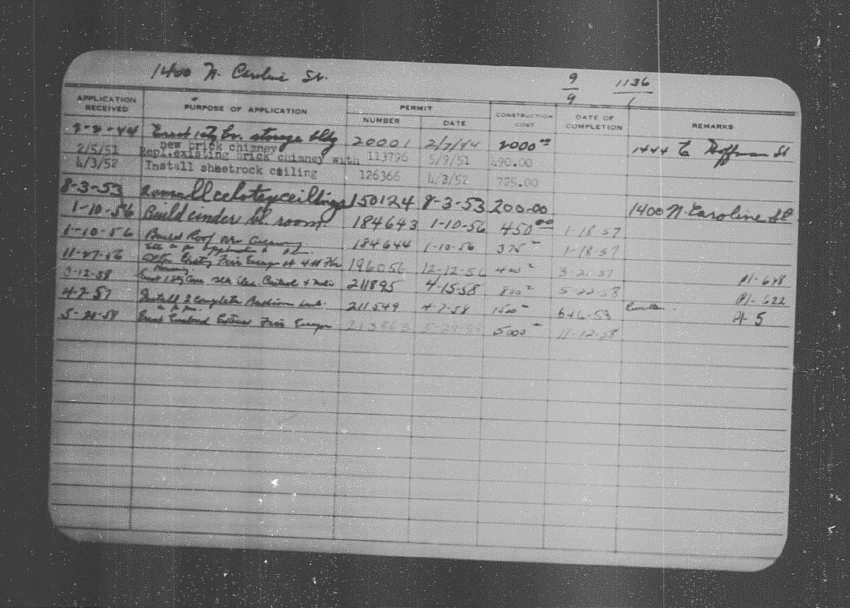 1400 N. Caroline St.
9 1136
9 1
APPLICATION RECEIVED PURPOSE OF APPLICATION PERMIT NUMBER DATE CONSTRUCTION COST DATE OF COMPLETION REMARKS
2-2-44 Erect 1 sty Br. storage bldg 20001 2/7/44 2000 00 1444 E Hoffman St
new brick chimney
2/5/51 Repl.existing brick chimney with 113796 5/9/51 490.00
4/3/52 Install sheetrock ceiling 126366 4/3/52 725.00
8-3-53 celotex ceilings 150124 8-3-53 200.00
1-10-56 Build cinder bl. room. 184643 1-10-56 450 00 1-18-57 1400 N. Caroline St
1-10-56 Build Roof over 184644 1-10-56 375 1-18-57
11-27-56 Fire Escape at 4th Flr 196056 12-12-56 400 3-21-57
3-12-58 Erect 211895 4-15-58 800 5-22-58 Pl-678
4-7-57 Install 2 Complete 211549 4-7-58 1500 6-16-53 Pl-622
5-28-58 Erect Enclosed Exterior Fire Escape 213863 5-28-58 5000 11-12-58 A-5